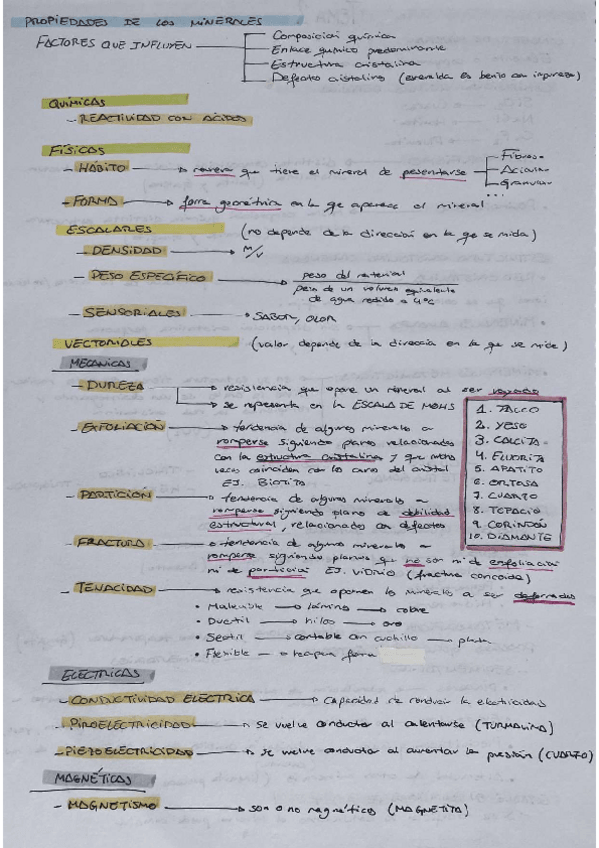 PROPIEDADES DE LOS MINERALES
FACTORES QUE INFLUYEN
Composición química
Enlace químico predominante
Estructura cristalina
Defectos cristalinos (esmeralda es berilo con impurezas)
QUÍMICAS
– REACTIVIDAD CON ÁCIDOS
FÍSICAS
– HÁBITO → manera que tiene el mineral de presentarse
Fibroso
Acicular
Granular
...
– FORMA → forma geométrica en la que aparece el mineral
ESCALARES (no depende de la dirección en la que se mida)
– DENSIDAD → M/V
– PESO ESPECÍFICO → peso del material
peso de un volumen equivalente
de agua medido a 4ºC
– SENSORIALES → • SABOR, OLOR
VECTORIALES (valor depende de la dirección en la que se mide)
MECÁNICAS
– DUREZA → resistencia que opone un mineral al ser rayado
→ se representa en la ESCALA DE MOHS
1. TALCO
2. YESO
3. CALCITA
4. FLUORITA
5. APATITO
6. ORTOSA
7. CUARZO
8. TOPACIO
9. CORINDÓN
10. DIAMANTE
– EXFOLIACIÓN → tendencia de algunos minerales a
romperse siguiendo planos relacionados
con la estructura cristalina y que muchas
veces coinciden con las caras del cristal
EJ. BIOTITA
– PARTICIÓN → tendencia de algunos minerales a
romperse siguiendo planos de debilidad
estructural, relacionados con defectos
– FRACTURA → tendencia de algunos minerales a
romperse siguiendo planos que no son ni de exfoliación
ni de partición EJ. VIDRIO (fractura concoidea)
– TENACIDAD → resistencia que oponen los minerales a ser deformados
• Maleable → lámina → cobre
• Ductil → hilos → oro
• Sectil → cortable con cuchillo → plata
• Flexible → recupera forma
ELÉCTRICAS
– CONDUCTIVIDAD ELÉCTRICA → capacidad de conducir la electricidad
– PIROELECTRICIDAD → se vuelve conductor al calentarse (TURMALINA)
– PIEZOELECTRICIDAD → se vuelve conductor al aumentar la presión (CUARZO)
MAGNÉTICAS
– MAGNETISMO → son o no magnéticos (MAGNETITA)